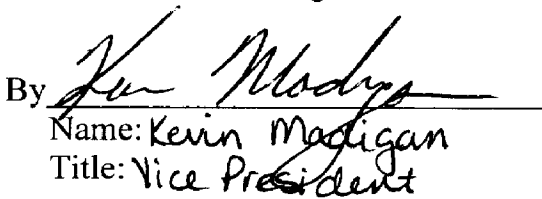 By Ken Madigan
Name: Kevin Madigan
Title: Vice President